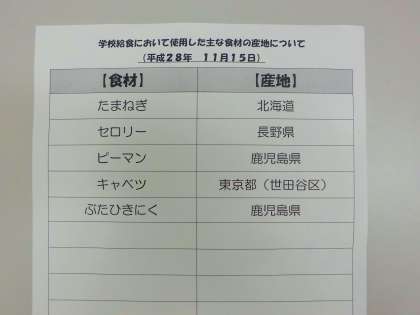 学校給食において使用した主な食材の産地について
（平成２８年　１１月１５日）
【食材】 【産地】
たまねぎ 北海道
セロリー 長野県
ピーマン 鹿児島県
キャベツ 東京都（世田谷区）
ぶたひきにく 鹿児島県